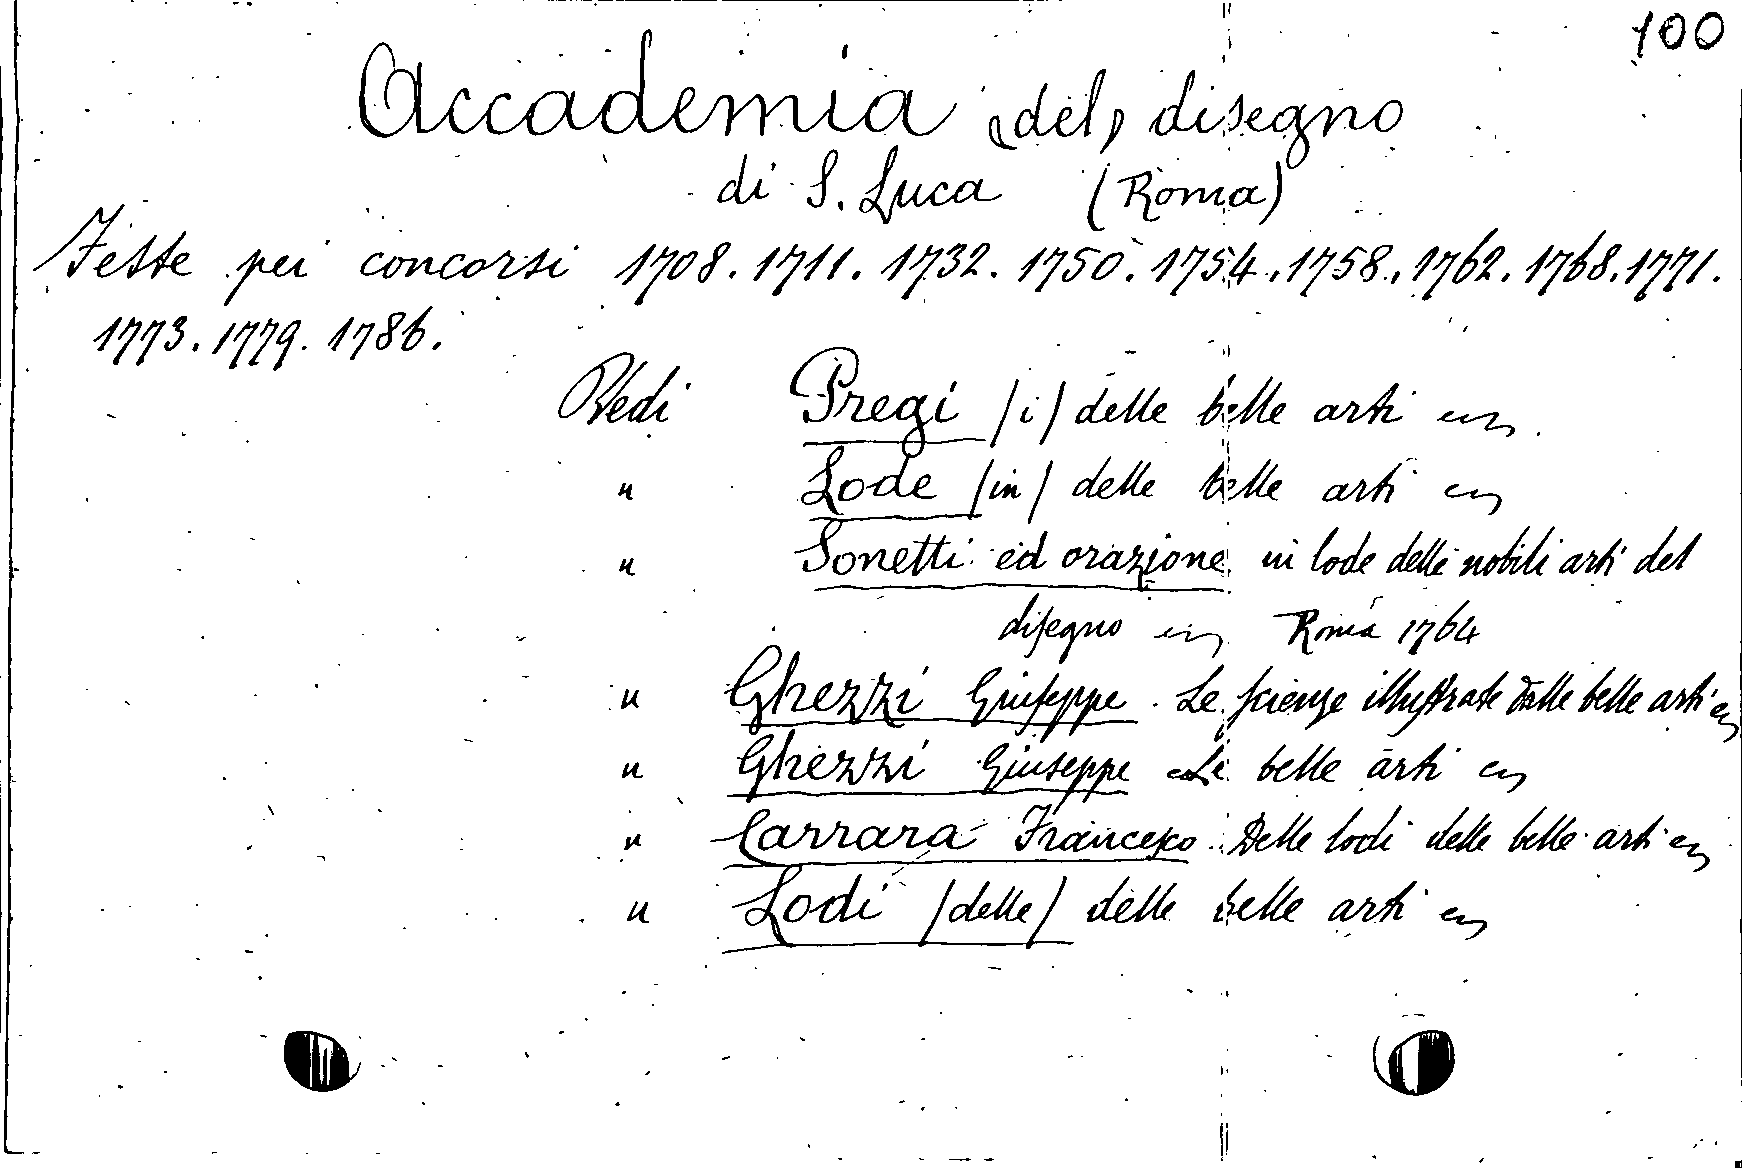 100
Accademia (del) disegno
di S. Luca (Roma)
Feste pei concorsi 1708. 1711. 1732. 1750. 1754. 1758. 1762. 1768. 1771.
1773. 1779. 1786.
Vedi Pregi (i) delle belle arti
" Lode (in) delle belle arti
" Sonetti ed orazione in lode delle nobili arti del
disegno Roma 1764
" Ghezzi Giuseppe. Le scienze illustrate dalle belle arti
" Ghezzi Giuseppe Le belle arti
" Carrara Francesco. Delle lodi delle belle arti
" Lodi (delle) delle belle arti